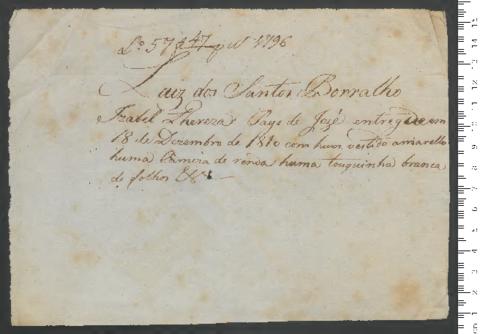 Lº 57 f 47 pel 1796
Luiz dos Santos Borralho
Izabel Thereza. Pago de José entregue em
18 de Dezembro de 1810 com hum vestido amarello
huma camiza de renda huma touquinha branca
de folhos &ª